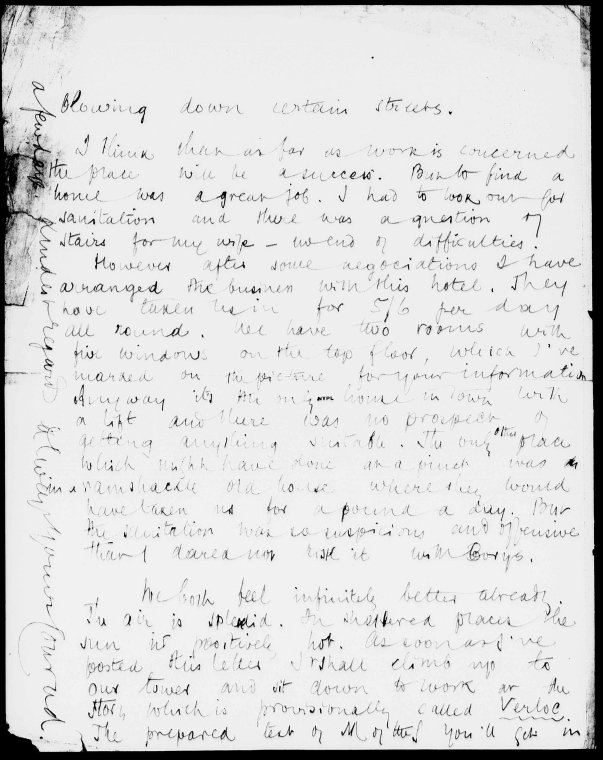 blowing down certain streets.
I think that as far as work is concerned
the place will be a success. But to find a
home was a great job. I had to look out for
sanitation and there was a question of
stairs for my wife – no end of difficulties.
However after some negociations I have
arranged the business with this hotel. They
have taken us in for 5/6 per day
all round. We have two rooms with
five windows on the top floor, which I've
marked on the picture for your information
Anyway it's the only home in town with
a lift and there was no prospect of
getting anything suitable. The only other place
which might have done at a pinch was
in a ramshackle old house where they would
have taken us for a pound a day. But
the sanitation was so suspicious and offensive
that I dared not risk it with Borys.
We both feel infinitely better already.
The air is splendid. In sheltered places the
sun is positively hot. As soon as I've
posted this letter I shall climb up to
our tower and sit down to work at the
story which is provisionally called Verloc.
The prepared text of M of the S you'll get in
a few days. Kindest regards Always yours Conrad.